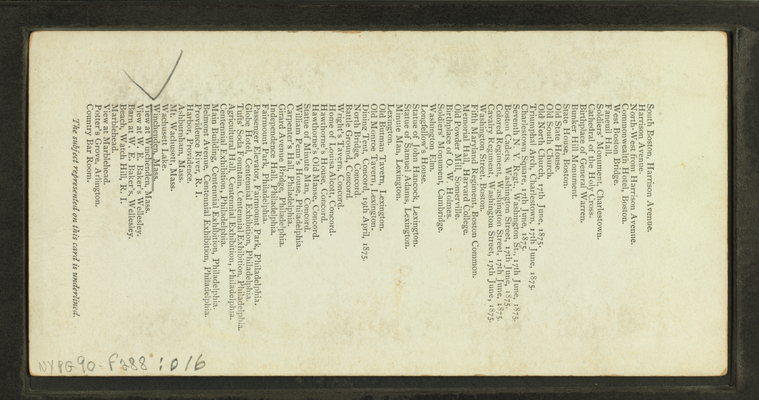 South Boston, Harrison Avenue.
Harrison Avenue.
North-West from Harrison Avenue.
Commonwealth Hotel, Boston.
West from Dover Bridge.
Faneuil Hall.
Soldiers' Monument, Charlestown.
Cathedral of the Holy Cross.
Birthplace of General Warren.
Bunker Hill Monument.
State House, Boston.
Old State House.
Old South Church.
Old North Church, 17th June, 1875.
Triumphal Arch, Charlestown, 17th June, 1875.
Charlestown Square, 17th June, 1875.
Seventh N. Y. Regt., Washington St., 17th June, 1875.
Boston Cadets, Washington Street, 17th June, 1875.
Colored Regiment, Washington Street, 17th June, 1875.
Cavalry Regiment, Washington Street, 17th June, 1875.
Washington Street, Boston.
Fifth Maryland Regiment, Boston Common.
Memorial Hall, Harvard College.
Old Powder Mill, Somerville.
Birthplace of O. W. Holmes.
Soldiers' Monument, Cambridge.
Washington Elm.
Longfellow's House.
Statue of John Hancock, Lexington.
Statue of Samuel Adams, Lexington.
Minute Man, Lexington.
Lexington.
Old Buckman Tavern, Lexington.
Old Monroe Tavern, Lexington.
Dinner Tent, Concord, 19th April, 1875.
North Bridge, Concord.
Battle Ground, Concord.
Wright's Tavern, Concord.
Home of Louisa Alcott, Concord.
Hawthorne's House, Concord.
Hawthorne's Old Manse, Concord.
Statue of Minute Man, Concord.
William Penn's House, Philadelphia.
Carpenter's Hall, Philadelphia.
Girard Avenue Bridge, Philadelphia.
Independence Hall, Philadelphia.
Fairmount Park, Philadelphia.
Passenger Elevator, Fairmount Park, Philadelphia.
Globe Hotel, Centennial Exhibition, Philadelphia.
Tufts' Soda Fountain, Centennial Exhibition, Philadelphia.
Agricultural Hall, Centennial Exhibition, Philadelphia.
Centennial Exhibition, Philadelphia.
Main Building, Centennial Exhibition, Philadelphia.
Belmont Avenue, Centennial Exhibition, Philadelphia.
Providence River, R. I.
Harbor, Providence.
Ashburnham, Mass.
Mt. Wachusett, Mass.
Wachusett Lake.
Winchendon, Mass.
View at Winchendon, Mass.
View at W. E. Baker's, Wellesley.
Barn at W. E. Baker's, Wellesley.
Beach, Watch Hill, R. I.
Marblehead.
View at Marblehead.
Potter's Grove, Arlington.
Country Bar Room.
The subject represented on this card is underlined.
NYPG90-F388:016